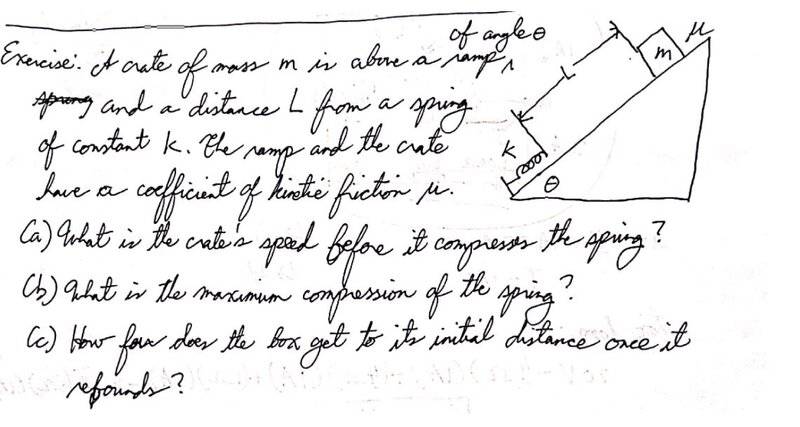 of angle θ
Exercise: A crate of mass m is above a ramp,
and a distance L from a spring
of constant k. The ramp and the crate
have a coefficient of kinetic friction μ.
(a) What is the crate's speed before it compresses the spring?
(b) What is the maximum compression of the spring?
(c) How far does the box get to its initial distance once it
rebounds?
μ
m
L
K
θ